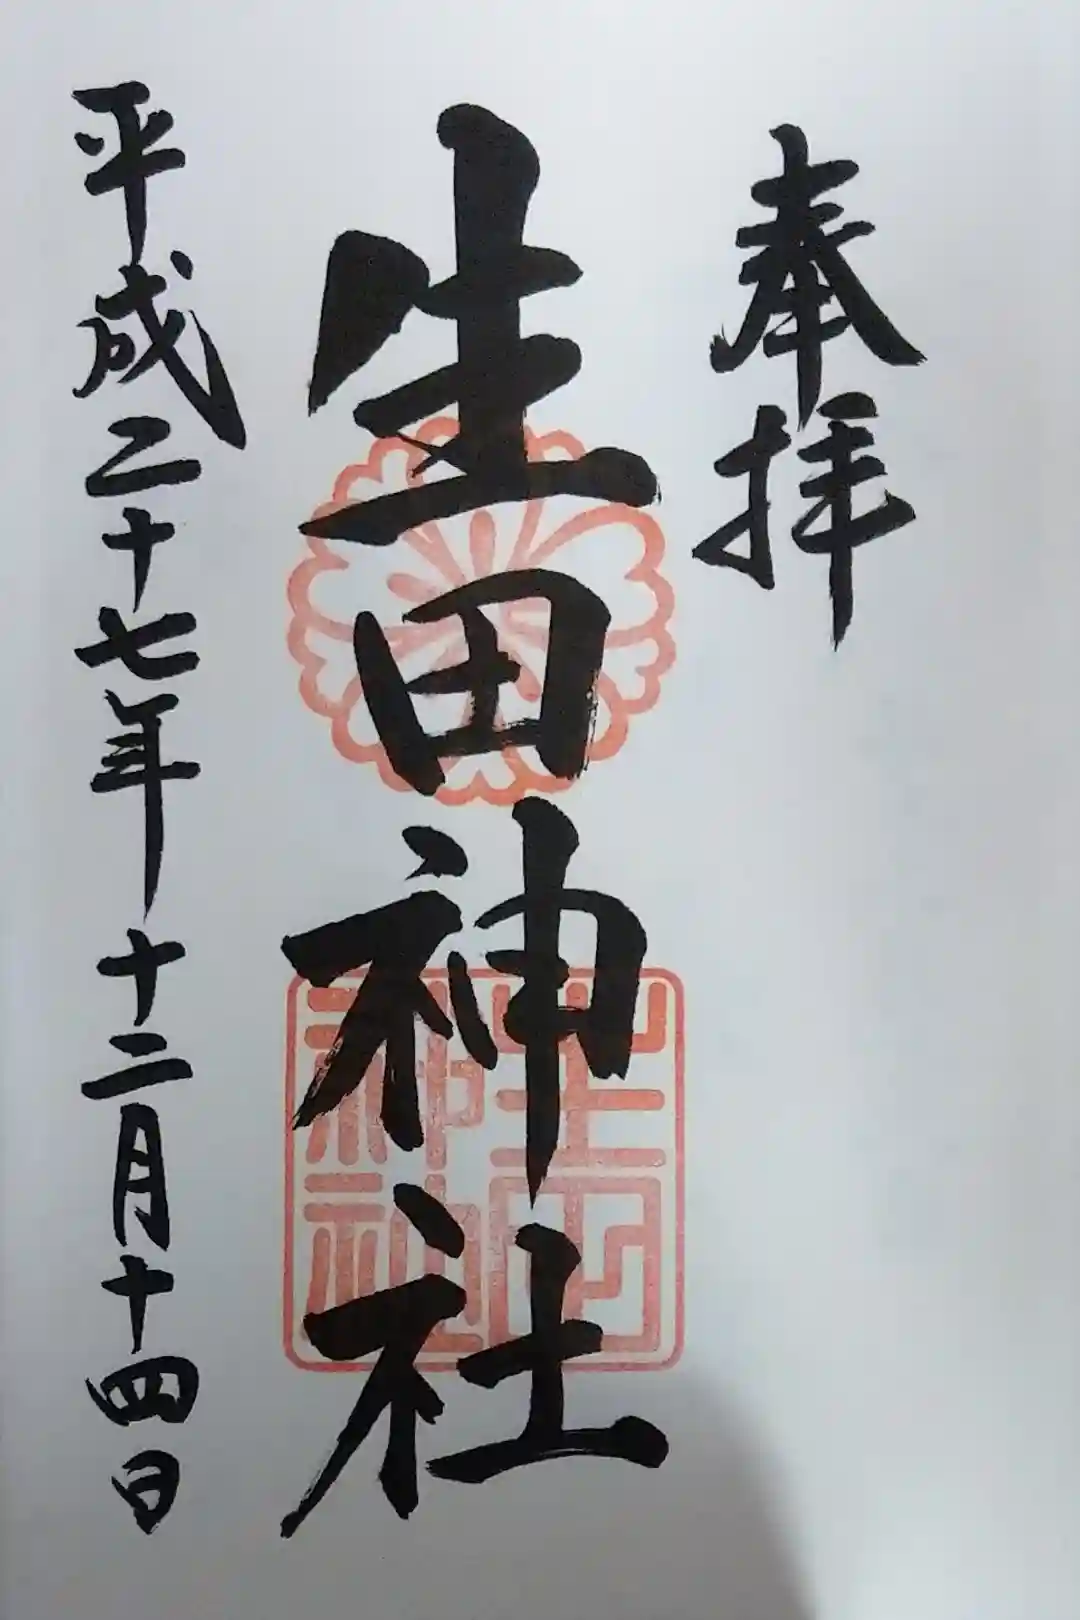 奉拝
生田神社
生田神社
平成二十七年十二月十四日